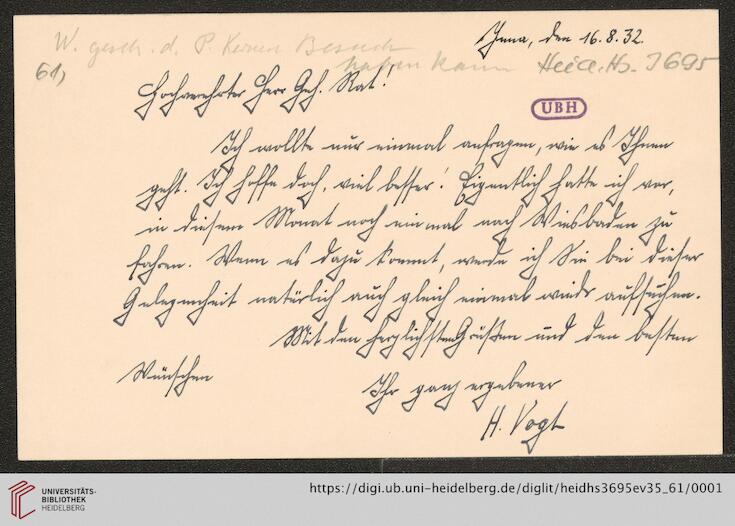 Jena, den 16.8.32.
W. gesch. d. P. keinen Besuch
haben kann Heid. Hs. 3695
61)
Hochverehrter Herr Geh. Rat!
UBH
Ich wollte nur einmal anfragen, wie es Ihnen
geht. Ich hoffe doch, viel besser! Eigentlich hatte ich vor,
in diesem Monat noch einmal nach Wiesbaden zu
fahren. Wenn es dazu kommt, werde ich Sie bei dieser
Gelegenheit natürlich auch gleich einmal wieder aufsuchen.
Mit den herzlichsten Grüßen und den besten
Wünschen
Ihr ganz ergebener
H. Vogt
UNIVERSITÄTS-
BIBLIOTHEK
HEIDELBERG
https://digi.ub.uni-heidelberg.de/diglit/heidhs3695ev35_61/0001